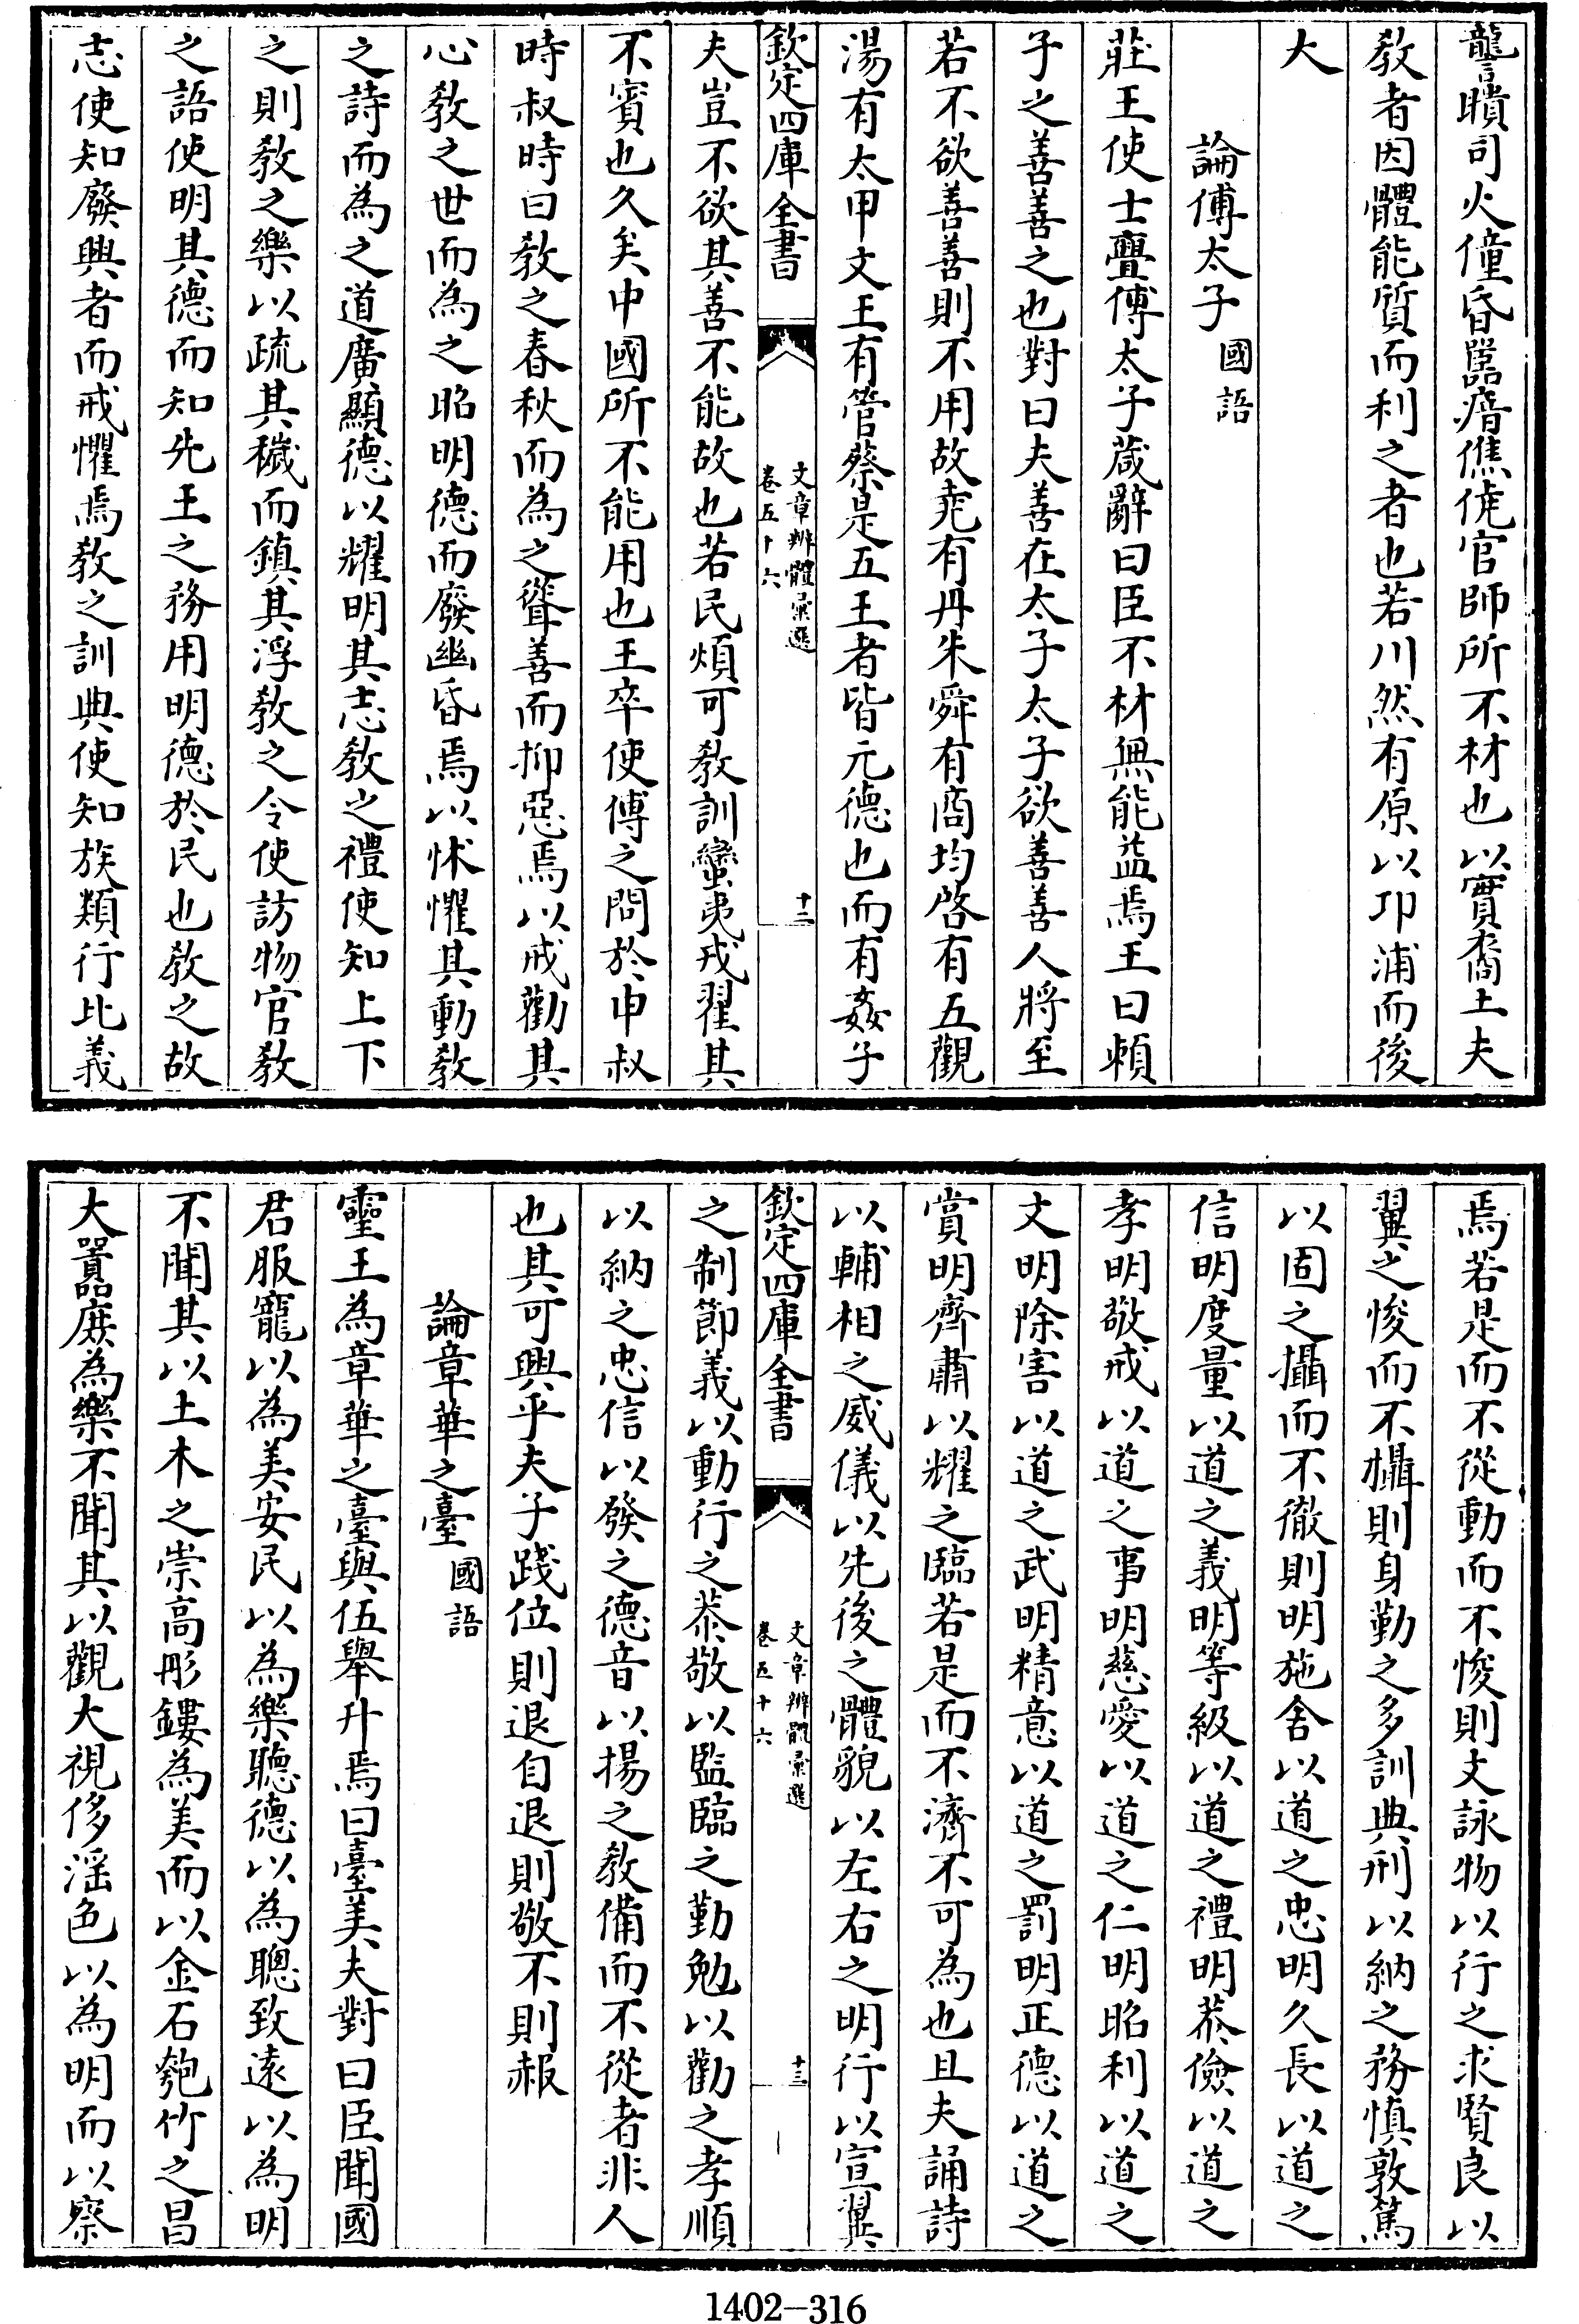 聾聵司火僮昏嚚瘖僬僥官師所不材也以實裔土夫
教者因體能質而利之者也若川然有原以卬浦而後
大
論傅太子 國語
莊王使士亹傅太子葴辭曰臣不材無能益焉王曰頼
子之善善之也對曰夫善在太子太子欲善善人將至
若不欲善善則不用故堯有丹朱舜有商均啓有五觀
湯有太甲文王有管蔡是五王者皆元德也而有姦子
欽定四庫全書 文章辨體彙選 卷五十六 十二
夫豈不欲其善不能故也若民煩可教訓蠻夷戎翟其
不賓也久矣中國所不能用也王卒使傅之問於申叔
時叔時曰教之春秋而為之聳善而抑惡焉以戒勸其
心教之世而為之昭明德而廢幽昏焉以怵懼其動教
之詩而為之道廣顯德以耀明其志教之禮使知上下
之則教之樂以疏其穢而鎮其浮教之令使訪物官教
之語使明其德而知先王之務用明德於民也教之故
志使知廢興者而戒懼焉教之訓典使知族類行比義
焉若是而不從動而不悛則文詠物以行之求賢良以
翼之悛而不攝則身勤之多訓典刑以納之務慎敦篤
以固之攝而不徹則明施舍以道之忠明久長以道之
信明度量以道之義明等級以道之禮明恭儉以道之
孝明敬戒以道之事明慈愛以道之仁明昭利以道之
文明除害以道之武明精意以道之罰明正德以道之
賞明齊肅以耀之臨若是而不濟不可為也且夫誦詩
以輔相之威儀以先後之體貌以左右之明行以宣翼
欽定四庫全書 文章辨體彙選 卷五十六 十三
之制節義以動行之恭敬以監臨之勤勉以勸之孝順
以納之忠信以發之德音以揚之教備而不從者非人
也其可興乎夫子踐位則退自退則敬不則赧
論章華之臺 國語
靈王為章華之臺與伍舉升焉曰臺美夫對曰臣聞國
君服寵以為美安民以為樂聽德以為聰致遠以為明
不聞其以土木之崇高彤鏤為美而以金石匏竹之昌
大嚻庶為樂不聞其以觀大視侈淫色以為明而以察
1402-316